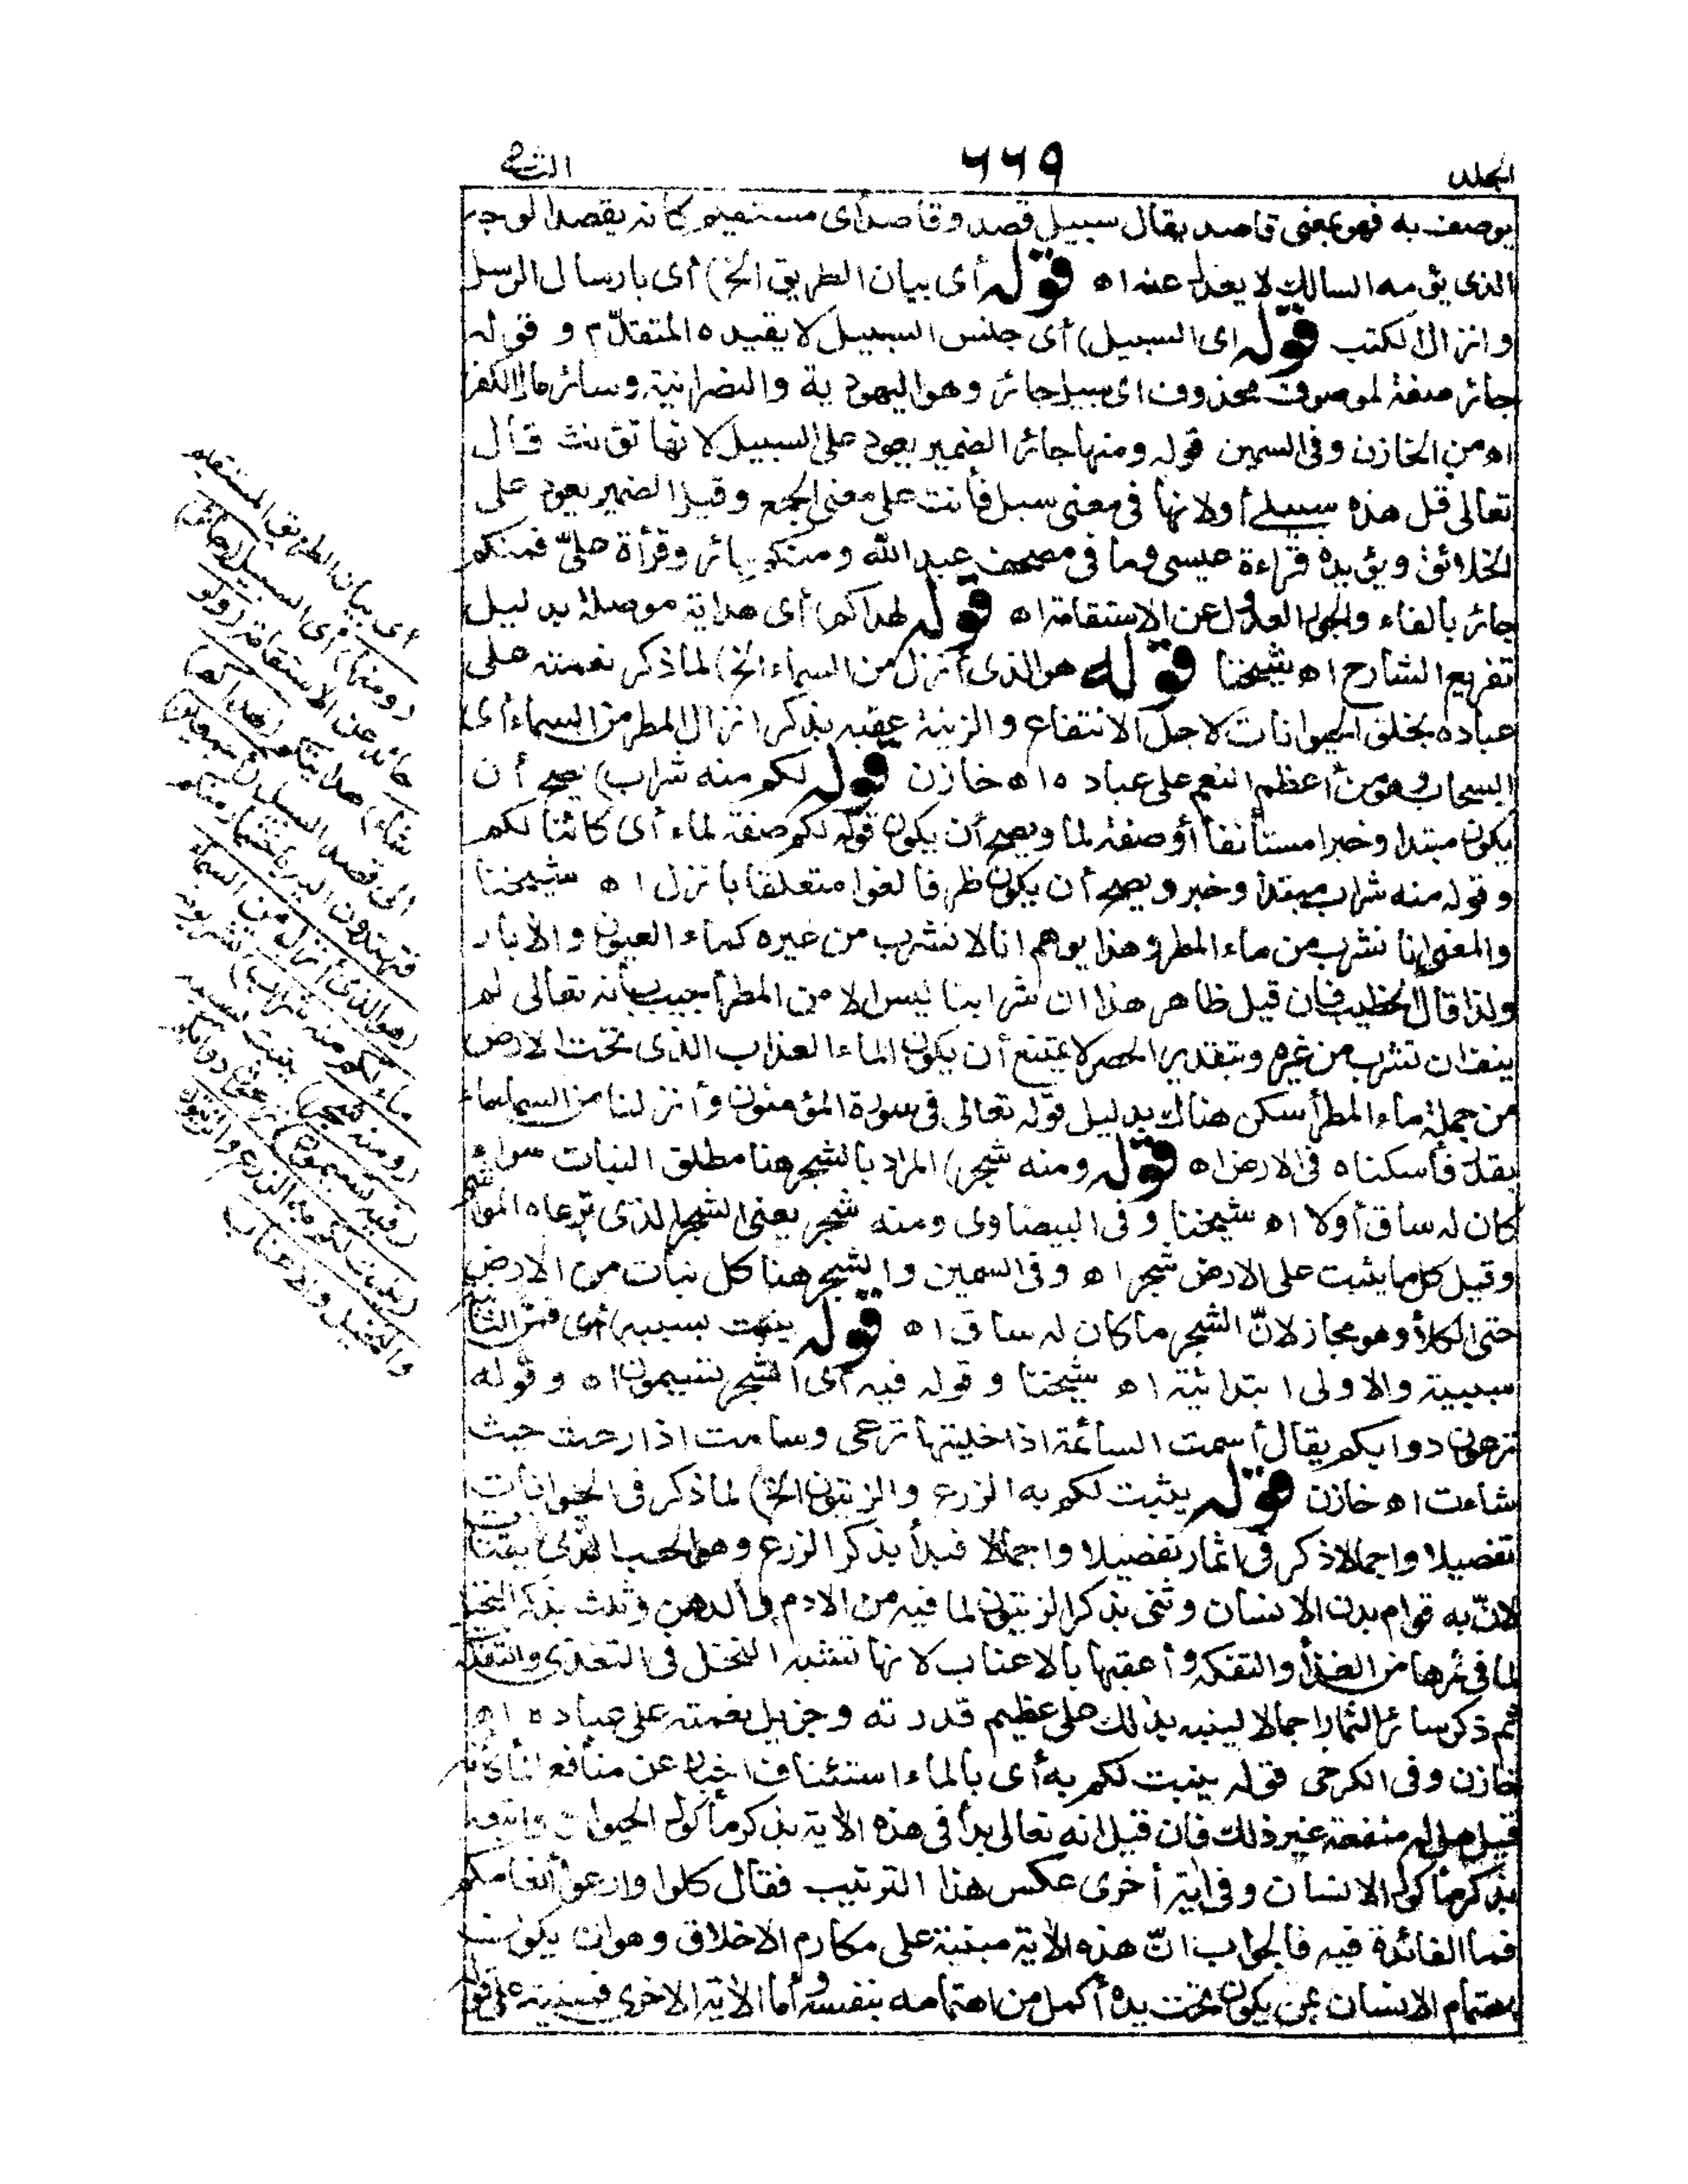 الجلد ٦٦٩ الثاني
يوصف به فهو بمعنى قاصد يقال سبيل قصد وقاصد أى مستقيم كانه يقصد الوجه
الذى يؤمه السالك لا يعدل عنه اه قوله أى بيان الطريق الخ) أى بارسال الرسل
وانزال الكتب قوله اى السبيل) أى جنس السبيل لا بقيده المتقدّم وقوله
جائر صفة لموصوف محذوف اى سبيل جائر وهو اليهودية والنصرانية وسائر ملل الكفر
اه من الخازن وفى السمين قوله ومنها جائر الضمير يعود على السبيل لانها تؤنث قال
تعالى قل هذه سبيلى أولانها فى معنى سبل فأنث على معنى الجمع وقيل الضمير يعود على
الخلائق ويؤيده قراءة عيسى وما فى مصحف عبد الله ومنكم جائر وقرأة علىّ فمنكم
جائر بالفاء والجور العدول عن الاستقامة اه قوله لهداكم) أى هداية موصلة بدليل
تفريع الشارح اه شيخنا قوله هو الذى أنزل من السماء الخ) لما ذكر نعمته على
عباده بخلق الحيوانات لاجل الانتفاع والزينة عقبه بذكر انزال المطر من السماء أى
السحاب وهو من أعظم النعم على عباده اه خازن قوله لكم منه شراب) يصح أن
يكون مبتدا وخبرا مستأنفا أو صفة لما ويصح أن يكون قوله لكم صفة لماء أى كائنا لكم
وقوله منه شراب مبتدأ وخبر ويصح أن يكون ظرفا لغوا متعلقا بانزل اه شيخنا
والمعنى انا نشرب من ماء المطر وهذا يوهم انا لا نشرب من غيره كماء العيون والأبار
ولذا قال الخطيب فان قيل ظاهر هذا ان شرابنا ليس الا من المطر أجيب بأنه تعالى لم
ينف ان نشرب من غيره وبتقدير الحصر لا يمتنع أن يكون الماء العذاب الذى تحت الارض
من جملة ماء المطر أسكن هناك بدليل قوله تعالى فى سورة المؤمنون وأنزلنا من السماء ماء
بقدر فأسكناه فى الارض اه قوله ومنه شجر) المراد بالشجر هنا مطلق النبات سواء
كان له ساق أولا اه شيخنا وفى البيضاوى ومنه شجر يعنى الشجر الذى ترعاه المواشى
وقيل كل ما ينبت على الارض شجر اه وفى السمين والشجر هنا كل نبات من الارض
حتى الكلأ وهو مجاز لانّ الشجر ما كان له ساق اه قوله ينبت بسببه) أى فمن الثانية
سببية والاولى ابتدائية اه شيخنا وقوله فيه أى الشجر تسيمون اه وقوله
ترعون دوابكم يقال أسمت السائمة اذا خليتها ترعى وسامت اذا رعت حيث
شاءت اه خازن قوله ينبت لكم به الزرع والزيتون الخ) لما ذكر فى الحيوانات
تفصيلا واجمالا ذكر فى الثمار تفصيلا واجمالا فبدأ بذكر الزرع وهو الحب الذى يقتات
لانّ به قوام بدن الانسان وثنى بذكر الزيتون لما فيه من الادم والدهن وثلث بذكر النخيل
لما فى ثمرها من الغذاء والتفكه وأعقبها بالاعناب لانها تشبه النخل فى التغذى والتفكه
ثم ذكر سائر الثمار اجمالا لينبه بذلك على عظيم قدرته وجزيل نعمته على عباده اه
خازن وفى الكرخى قوله ينبت لكم به أى بالماء استئناف اخبار عن منافع الماء كأنه
قيل هل له منفعة غير ذلك فان قيل انه تعالى بدأ فى هذه الأية بذكر مأكول الحيوان واتبعه
بذكر مأكول الانسان وفى أية أخرى عكس هذا الترتيب فقال كلوا وارعوا أنعامكم
فما الفائدة فيه فالجواب انّ هذه الأية مبنية على مكارم الاخلاق وهو ان يكون
اهتمام الانسان بمن يكون تحت يده أكمل من اهتمامه بنفسه وأما الأية الاخرى فمبنية على قوله
أى بيان الطريق المستقيم
(ومنها) أى السبيل (جائر)
حائد عن الاستقامة (ولو
شاء) هدايتكم (لهداكم)
الى قصد السبيل (أجمعين)
فتهتدون اليه باختيار منكم
(هو الذى أنزل من السماء
ماء لكم منه شراب) تشربونه
(ومنه شجر) ينبت بسببه
(فيه تسيمون) ترعون دوابكم
(ينبت لكم به الزرع والزيتون
والنخيل والاعناب